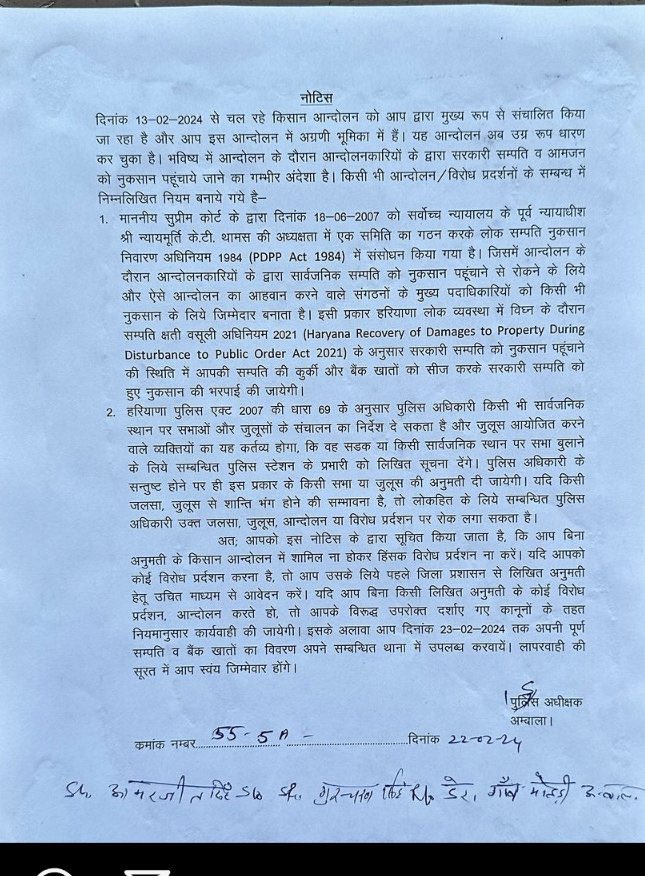 नोटिस
दिनांक 13–02–2024 से चल रहे किसान आन्दोलन को आप द्वारा मुख्य रूप से संचालित किया
जा रहा है और आप इस आन्दोलन में अग्रणी भूमिका में हैं। यह आन्दोलन अब उग्र रूप धारण
कर चुका है। भविष्य में आन्दोलन के दौरान आन्दोलनकारियों के द्वारा सरकारी सम्पति व आमजन
को नुकसान पहूंचाये जाने का गम्भीर अंदेशा है। किसी भी आन्दोलन/विरोध प्रदर्शनों के सम्बन्ध में
निम्नलिखित नियम बनाये गये है–
1. माननीय सुप्रीम कोर्ट के द्वारा दिनांक 18–06–2007 को सर्वोच्च न्यायालय के पूर्व न्यायाधीश
श्री न्यायमूर्ति के.टी. थामस की अध्यक्षता में एक समिति का गठन करके लोक सम्पति नुकसान
निवारण अधिनियम 1984 (PDPP Act 1984) में संसोधन किया गया है। जिसमें आन्दोलन के
दौरान आन्दोलनकारियों के द्वारा सार्वजनिक सम्पति को नुकसान पहूंचाने से रोकने के लिये
और ऐसे आन्दोलन का आहवान करने वाले संगठनों के मुख्य पदाधिकारियों को किसी भी
नुकसान के लिये जिम्मेदार बनाता है। इसी प्रकार हरियाणा लोक व्यवस्था में विघ्न के दौरान
सम्पति क्षती वसूली अधिनियम 2021 (Haryana Recovery of Damages to Property During
Disturbance to Public Order Act 2021) के अनुसार सरकारी सम्पति को नुकसान पहूंचाने
की स्थिति में आपकी सम्पति की कुर्की और बैंक खातों को सीज करके सरकारी सम्पति को
हुए नुकसान की भरपाई की जायेगी।
2. हरियाणा पुलिस एक्ट 2007 की धारा 69 के अनुसार पुलिस अधिकारी किसी भी सार्वजनिक
स्थान पर सभाओं और जुलूसों के संचालन का निर्देश दे सकता है और जुलूस आयोजित करने
वाले व्यक्तियों का यह कर्तव्य होगा, कि वह सडक या किसी सार्वजनिक स्थान पर सभा बुलाने
के लिये सम्बन्धित पुलिस स्टेशन के प्रभारी को लिखित सूचना देंगे। पुलिस अधिकारी के
सन्तुष्ट होने पर ही इस प्रकार के किसी सभा या जुलूस की अनुमती दी जायेगी। यदि किसी
जलसा, जुलूस से शान्ति भंग होने की सम्भावना है, तो लोकहित के लिये सम्बन्धित पुलिस
अधिकारी उक्त जलसा, जुलूस, आन्दोलन या विरोध प्रर्दशन पर रोक लगा सकता है।
अत; आपको इस नोटिस के द्वारा सूचित किया जाता है, कि आप बिना
अनुमती के किसान आन्दोलन में शामिल ना होकर हिंसक विरोध प्रर्दशन ना करें। यदि आपको
कोई विरोध प्रर्दशन करना है, तो आप उसके लिये पहले जिला प्रशासन से लिखित अनुमती
हेतू उचित माध्यम से आवेदन करें। यदि आप बिना किसी लिखित अनुमती के कोई विरोध
प्रर्दशन, आन्दोलन करते हो, तो आपके विरूद्ध उपरोक्त दर्शाए गए कानूनों के तहत
नियमानुसार कार्यवाही की जायेगी। इसके अलावा आप दिनांक 23–02–2024 तक अपनी पूर्ण
सम्पति व बैंक खातों का विवरण अपने सम्बन्धित थाना में उपलब्ध करवायें। लापरवाही की
सूरत में आप स्वंय जिम्मेवार होंगे।
पुलिस अधीक्षक
अम्बाला।
कमांक नम्बर 55-5A – दिनांक 22-02-24
Sh. अमरजीत सिंह S/o Sh. गुरचरण सिंह R/o डेरा, गाँव मोहड़ी